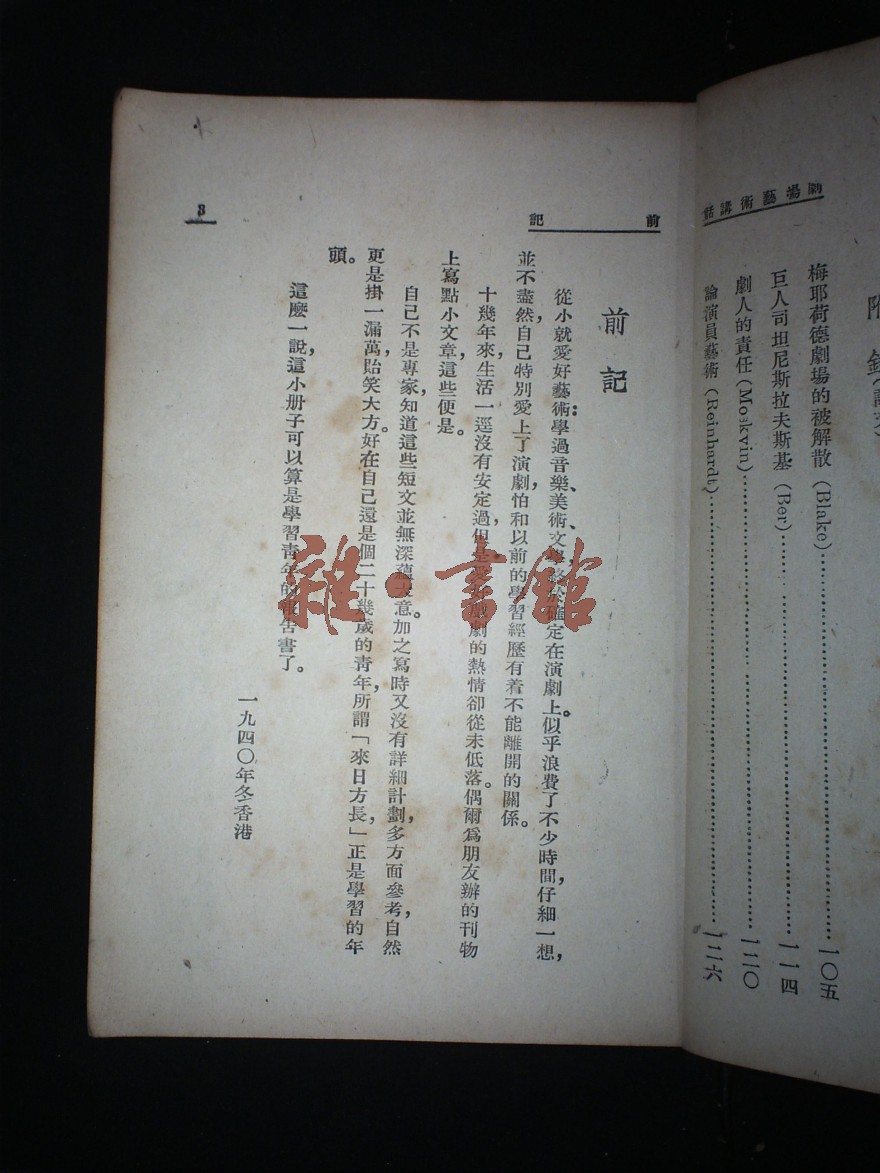 劇場藝術講話
附錄
梅耶荷德劇場的被解散(Blake)…………一〇五
巨人司坦尼斯拉夫斯基(Ber)…………一一四
劇人的責任(Moskvin)…………一二〇
論演員藝術(Reinhardt)…………一二六
前記
3
前記
從小就愛好藝術:學過音樂、美術、文學,終於確定在演劇上。似乎浪費了不少時間,仔細一想,
並不盡然,自己特別愛上了演劇,怕和以前的學習經歷有着不能離開的關係。
十幾年來,生活一逕沒有安定過,但是愛好戲劇的熱情卻從未低落。偶爾爲朋友辦的刊物
上寫點小文章,這些便是。
自己不是專家,知道這些短文並無深蘊大意。加之寫時又沒有詳細計劃,多方面參考,自然
更是掛一漏萬,貽笑大方。好在自己還是個二十幾歲的青年,所謂「來日方長,」正是學習的年
頭。
這麼一說,這小册子可以算是學習青年的報告書了。
一九四〇年冬香港
雜·書館